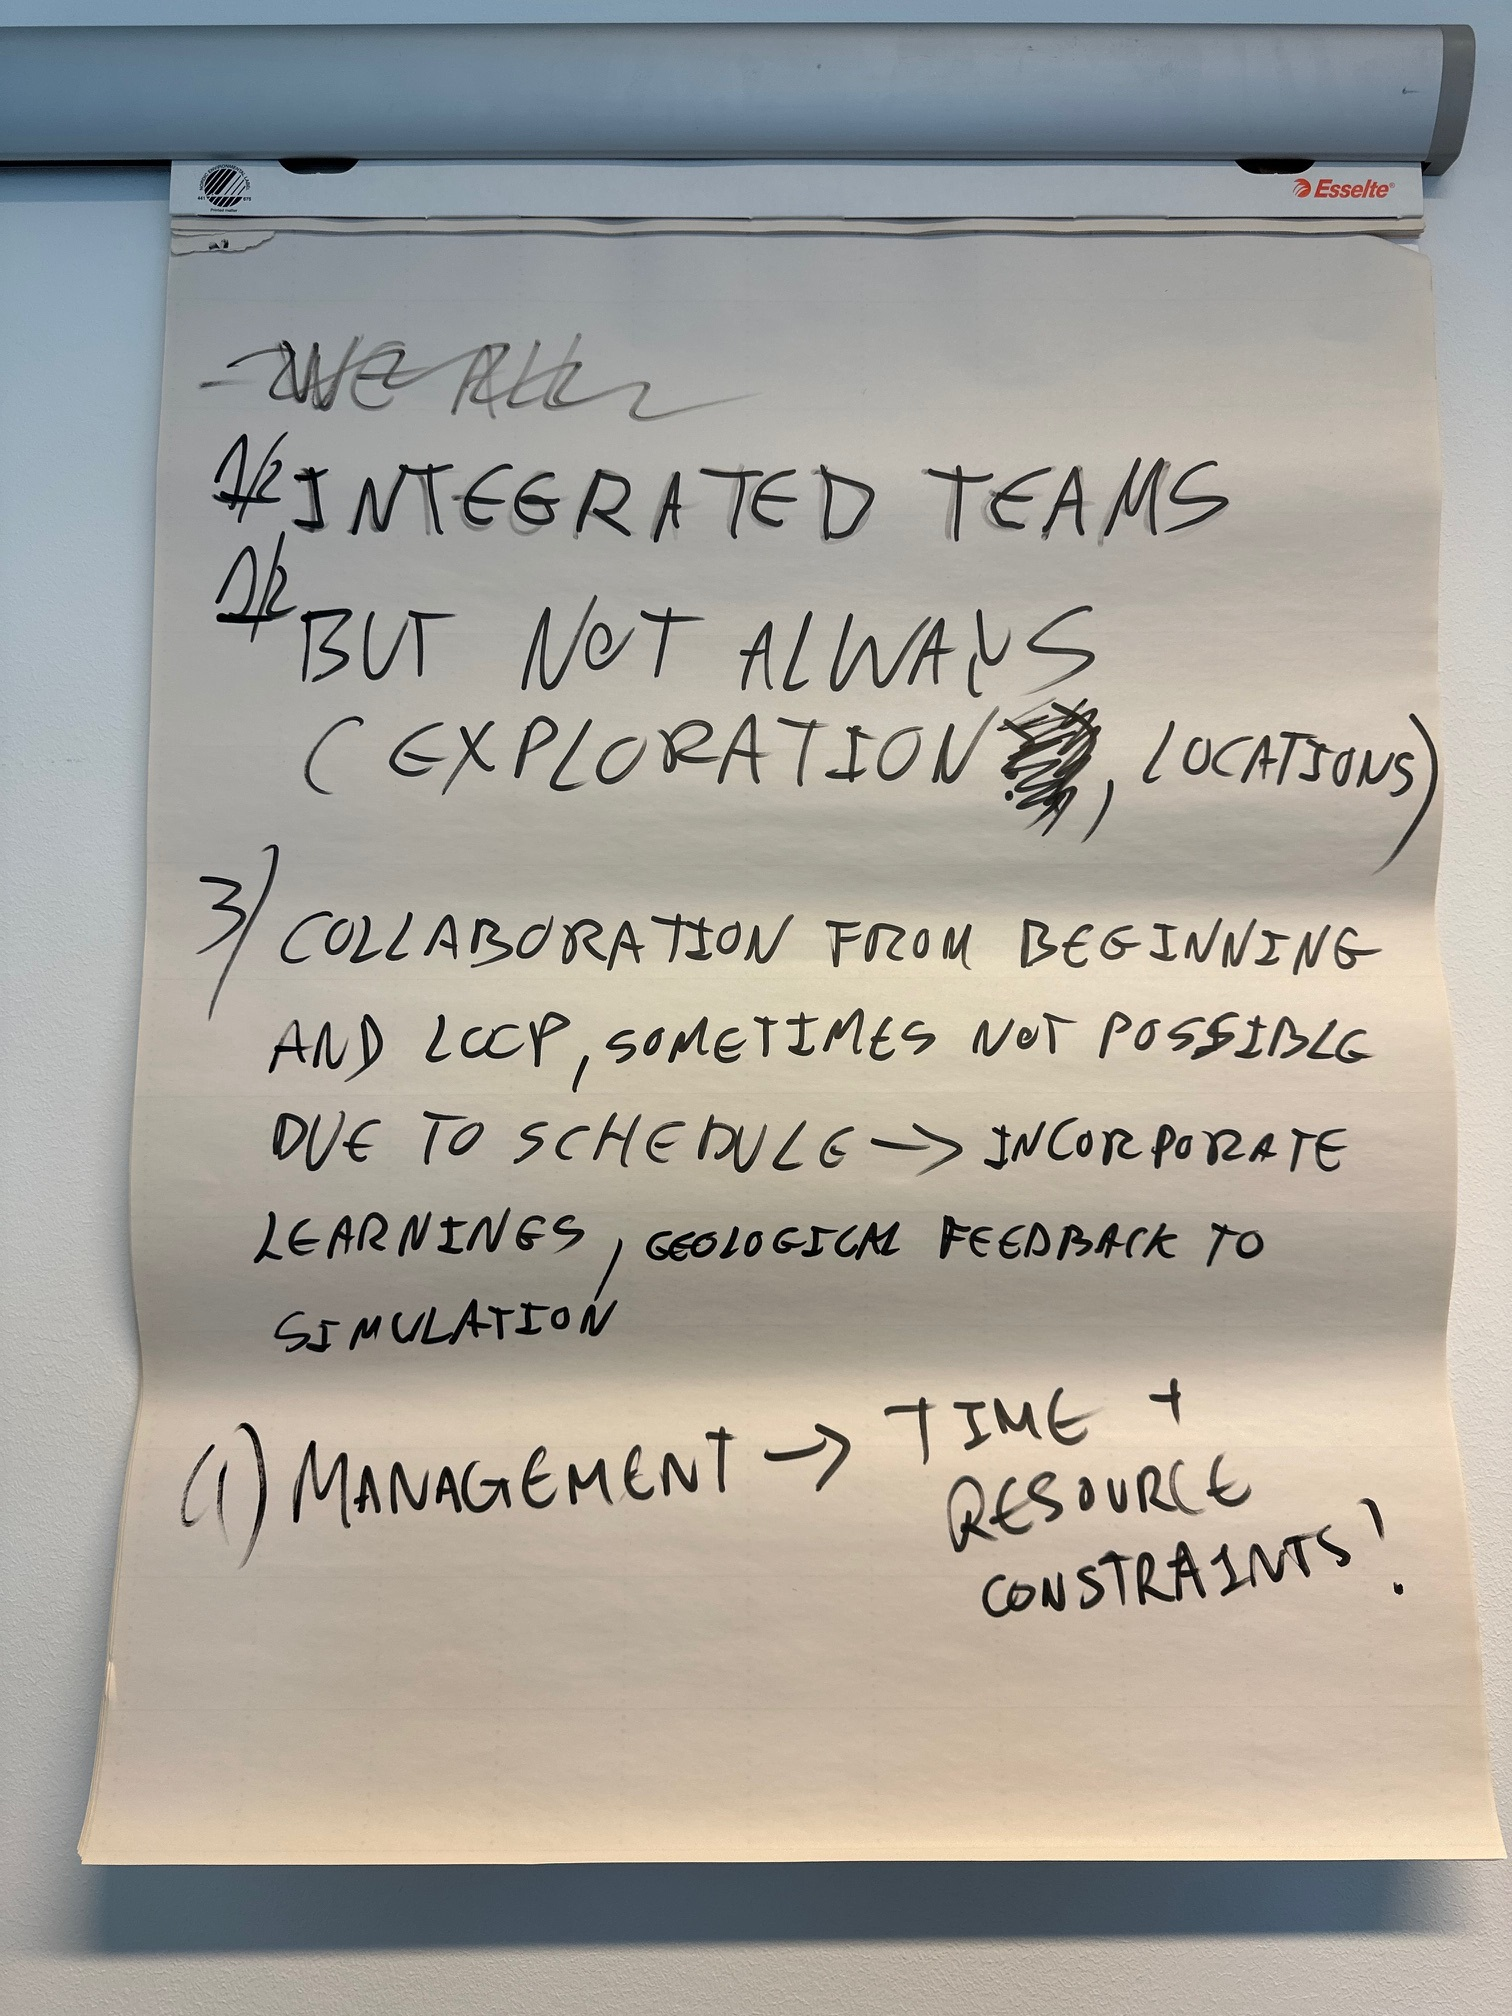 Esselte
- WE ALL
1/2 INTEGRATED TEAMS
1/2 BUT NOT ALWAYS
(EXPLORATION, LOCATIONS)
3) COLLABORATION FROM BEGINNING
AND LOOP, SOMETIMES NOT POSSIBLE
DUE TO SCHEDULE → INCORPORATE
LEARNINGS, GEOLOGICAL FEEDBACK TO
SIMULATION
(1) MANAGEMENT → TIME +
RESOURCE
CONSTRAINTS!